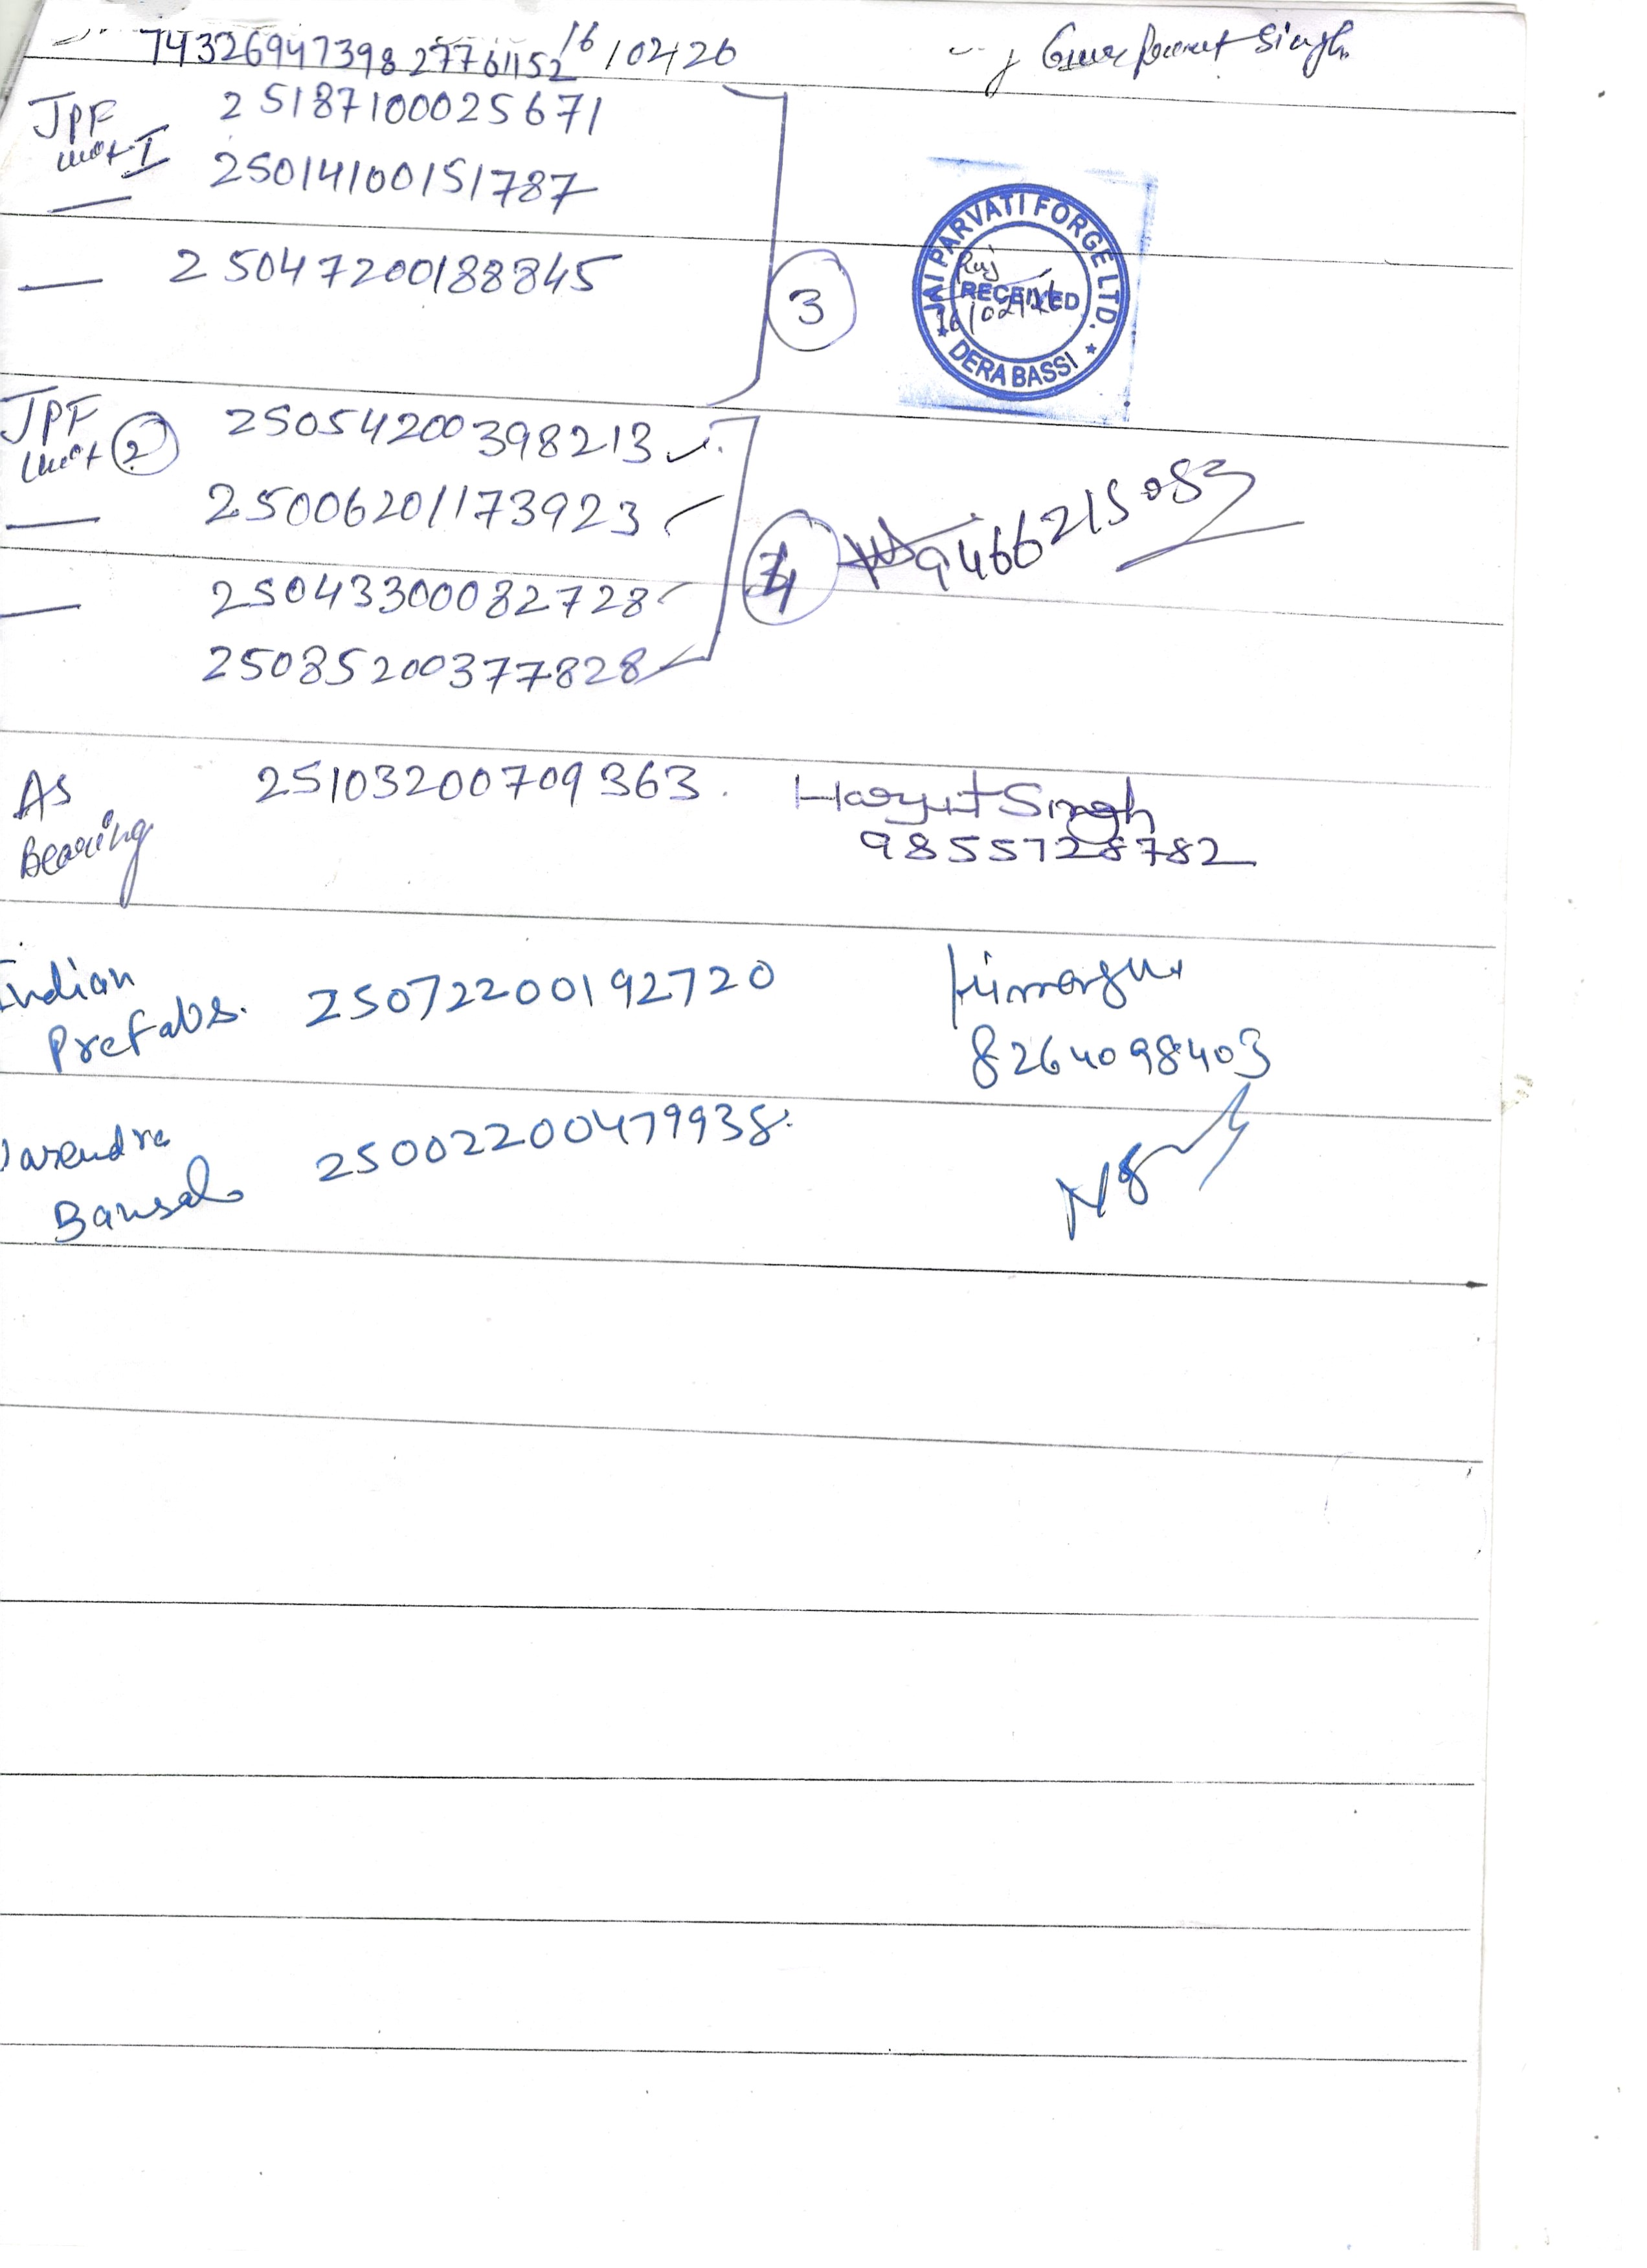 74326947398 27761152 16/02/26
Gurpreet Singh
JPF 25187100025671
unit I 25014100151787
25047200188845
3
JAI PARVATI FORGE LTD.
Raj
RECEIVED
16/02/26
★ DERA BASSI ★
JPF 25054200398213 ✓
unit 2
25006201173923 ✓
4 9466215083
25043300082728 ✓
25085200377828 ✓
As 25103200709363. Harjit Singh
Bearing 9855728782
Indian 25072200192720
Prefabs. 8264098403
Narendra 25002200479938.
Bansal